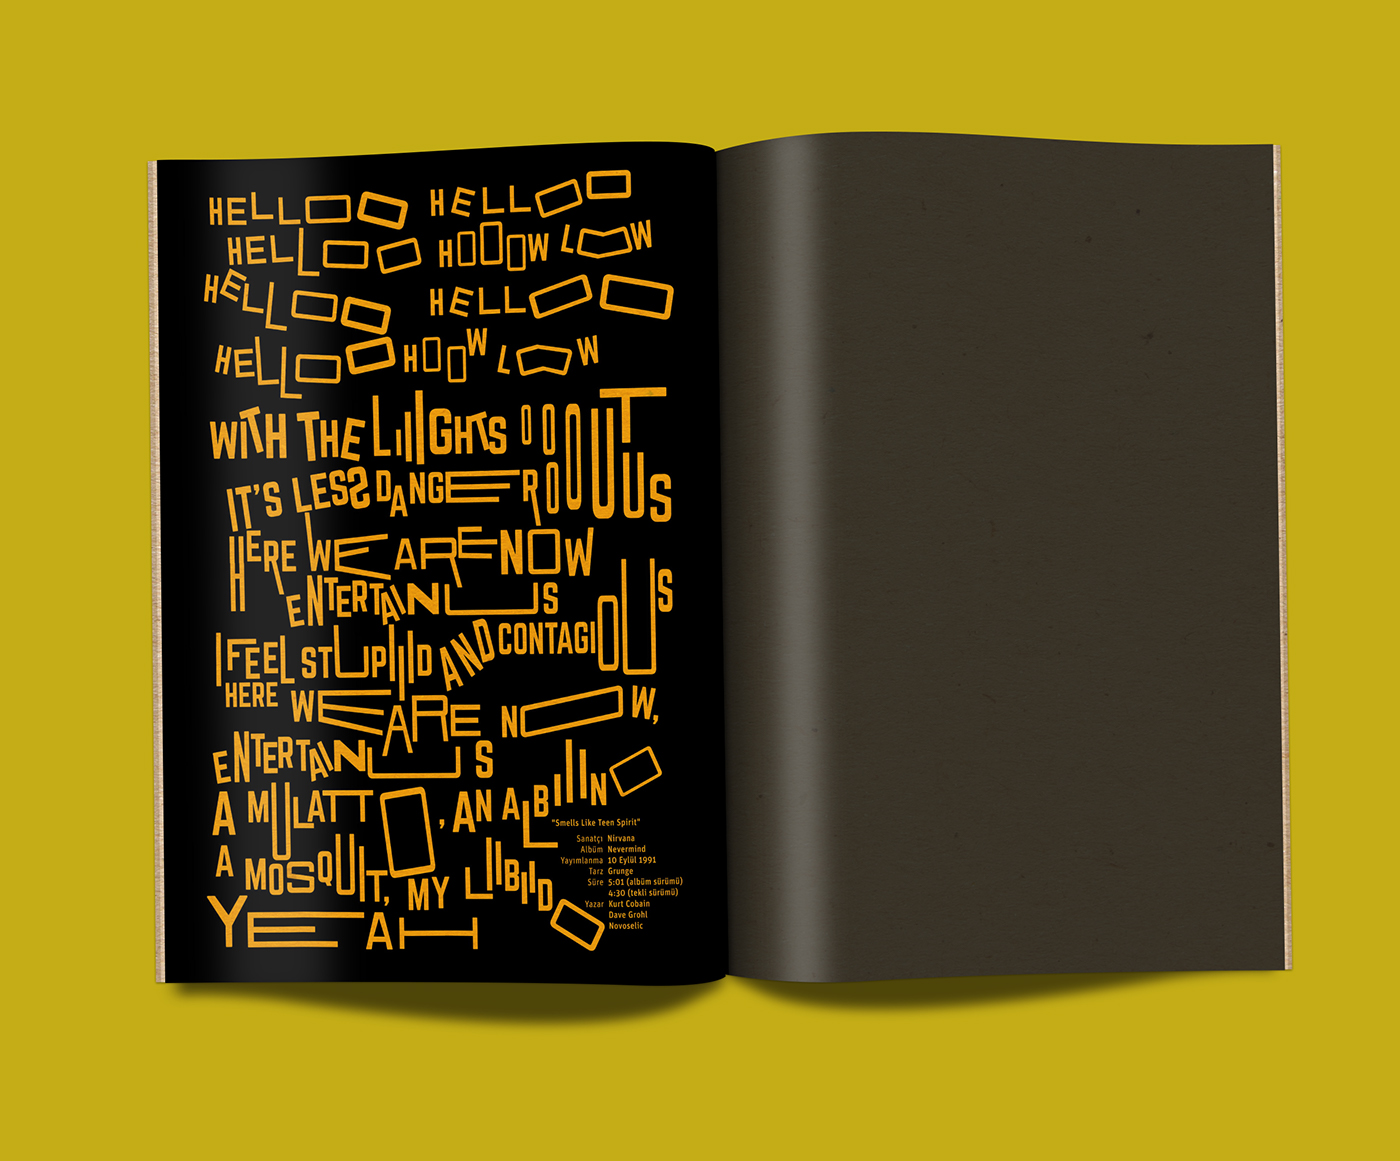 HELLOO HELLOO
HELLOO HOOOW LOW
HELLOO HELLOO
HELLOO HOOW LOW
WITH THE LIIIGHTS OOOUT
IT'S LESS DANGEROOUS
HERE WE ARE NOW
ENTERTAIN US
I FEEL STUPIIID AND CONTAGIOUS
HERE WE ARE NOW,
ENTERTAIN US
A MULATTO, AN ALBIIINO
A MOSQUIT, MY LIIBIIDO
YEAH
"Smells Like Teen Spirit"
Sanatçı Nirvana
Albüm Nevermind
Yayımlanma 10 Eylül 1991
Tarz Grunge
Süre 5:01 (albüm sürümü)
4:30 (tekli sürümü)
Yazar Kurt Cobain
Dave Grohl
Novoselic